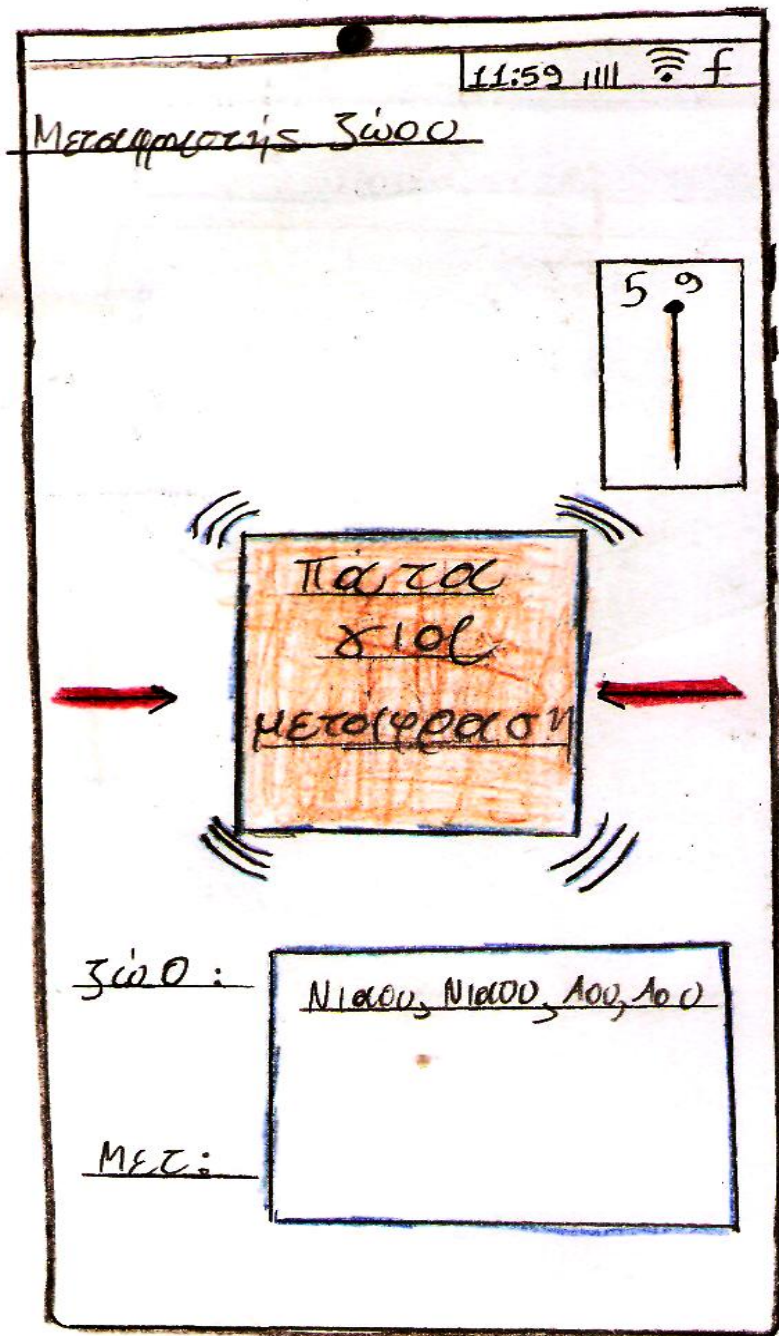 11:59
Μεταφραστής ζώου
5 9
Πάτα
για
μετάφραση
ζώο:
Νιαου, Νιαου, Λου, Λου
Μετ: